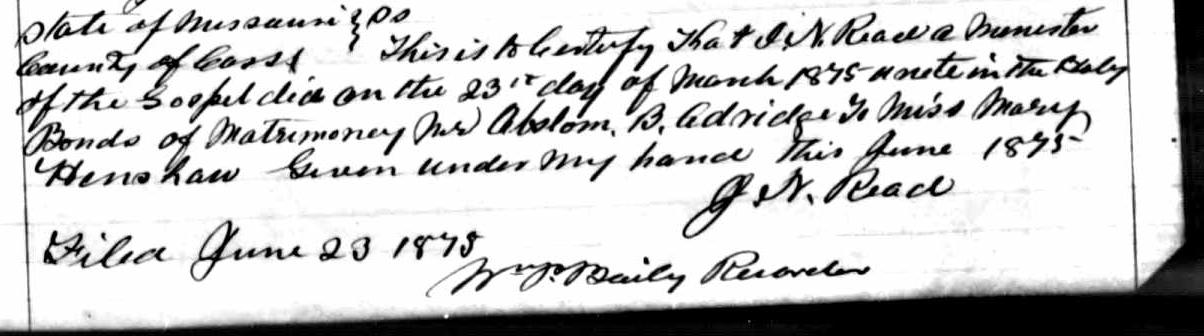 State of Missouri } SS
County of Cass } This is to Certify That I. N. Read a Minister
of the Gospel did on the 23rd day of March 1875 unite in the Holy
Bonds of Matrimoney Mr Abslom. B. Adridge To Miss Mary
Henshaw Given under my hand this June 1875
J. N. Read
Filed June 23 1875
Wm P. Baily Recorder